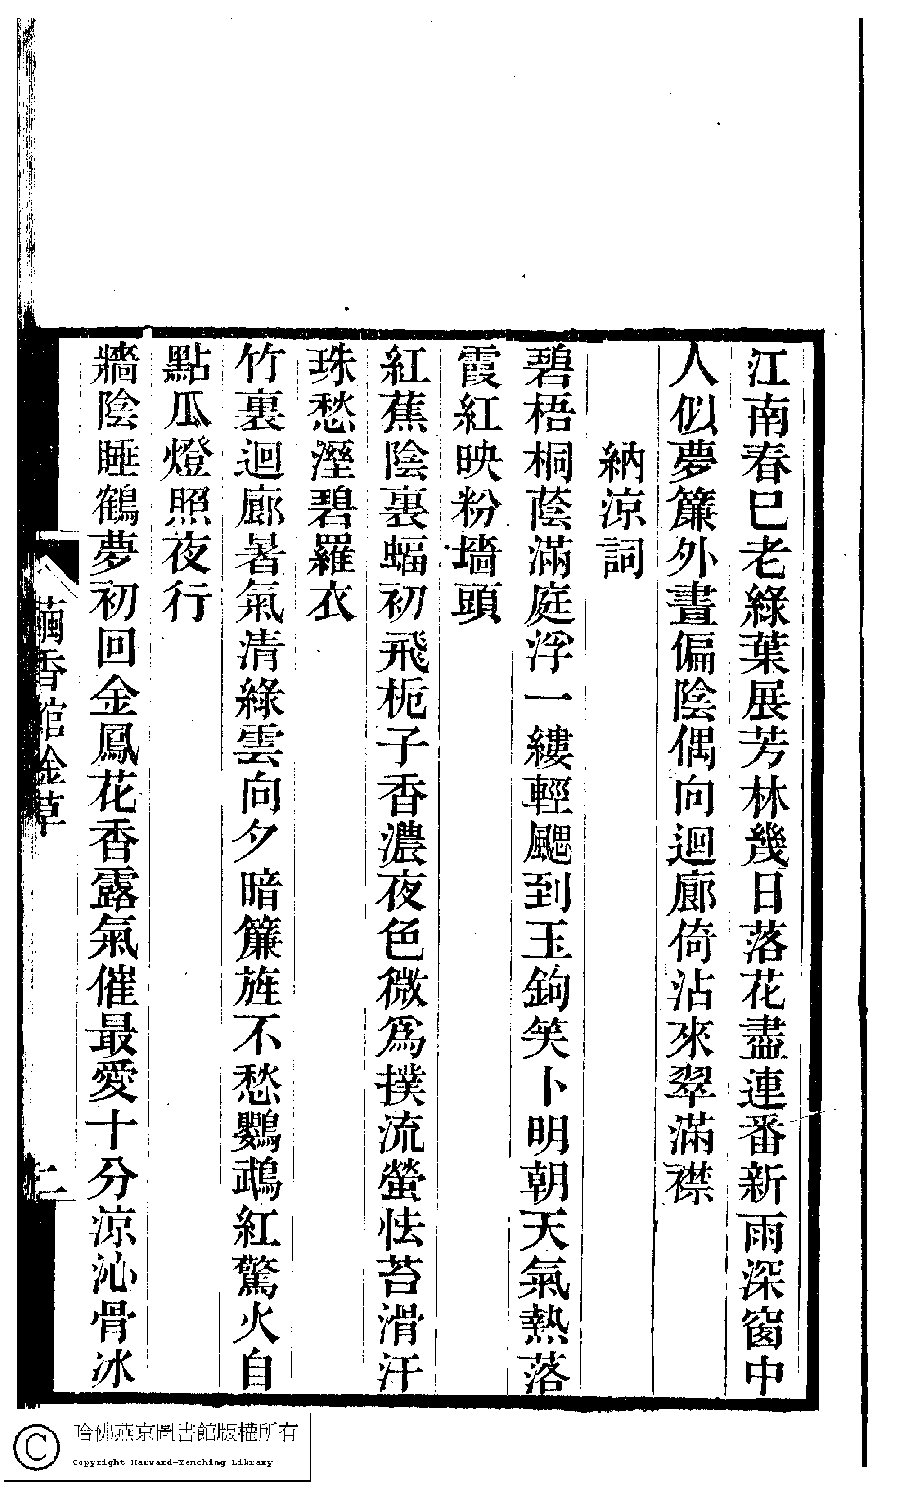 江南春巳老綠葉展芳林幾日落花盡連番新雨深窗中
人似夢簾外晝偏陰偶向迴廊倚沾來翠滿襟
納涼詞
碧梧桐蔭滿庭浮一縷輕颸到玉鉤笑卜明朝天氣熱落
霞紅映粉墻頭
紅蕉陰裏蝠初飛梔子香濃夜色微爲撲流螢怯苔滑汗
珠愁溼碧羅衣
竹裏迴廊暑氣清綠雲向夕暗簾旌不愁鸚鵡紅驚火自
點瓜燈照夜行
牆陰睡鶴夢初回金鳳花香露氣催最愛十分涼沁骨冰
繭香館唫草
二
哈佛燕京圖書館版權所有
Copyright Harvard-Yenching Library